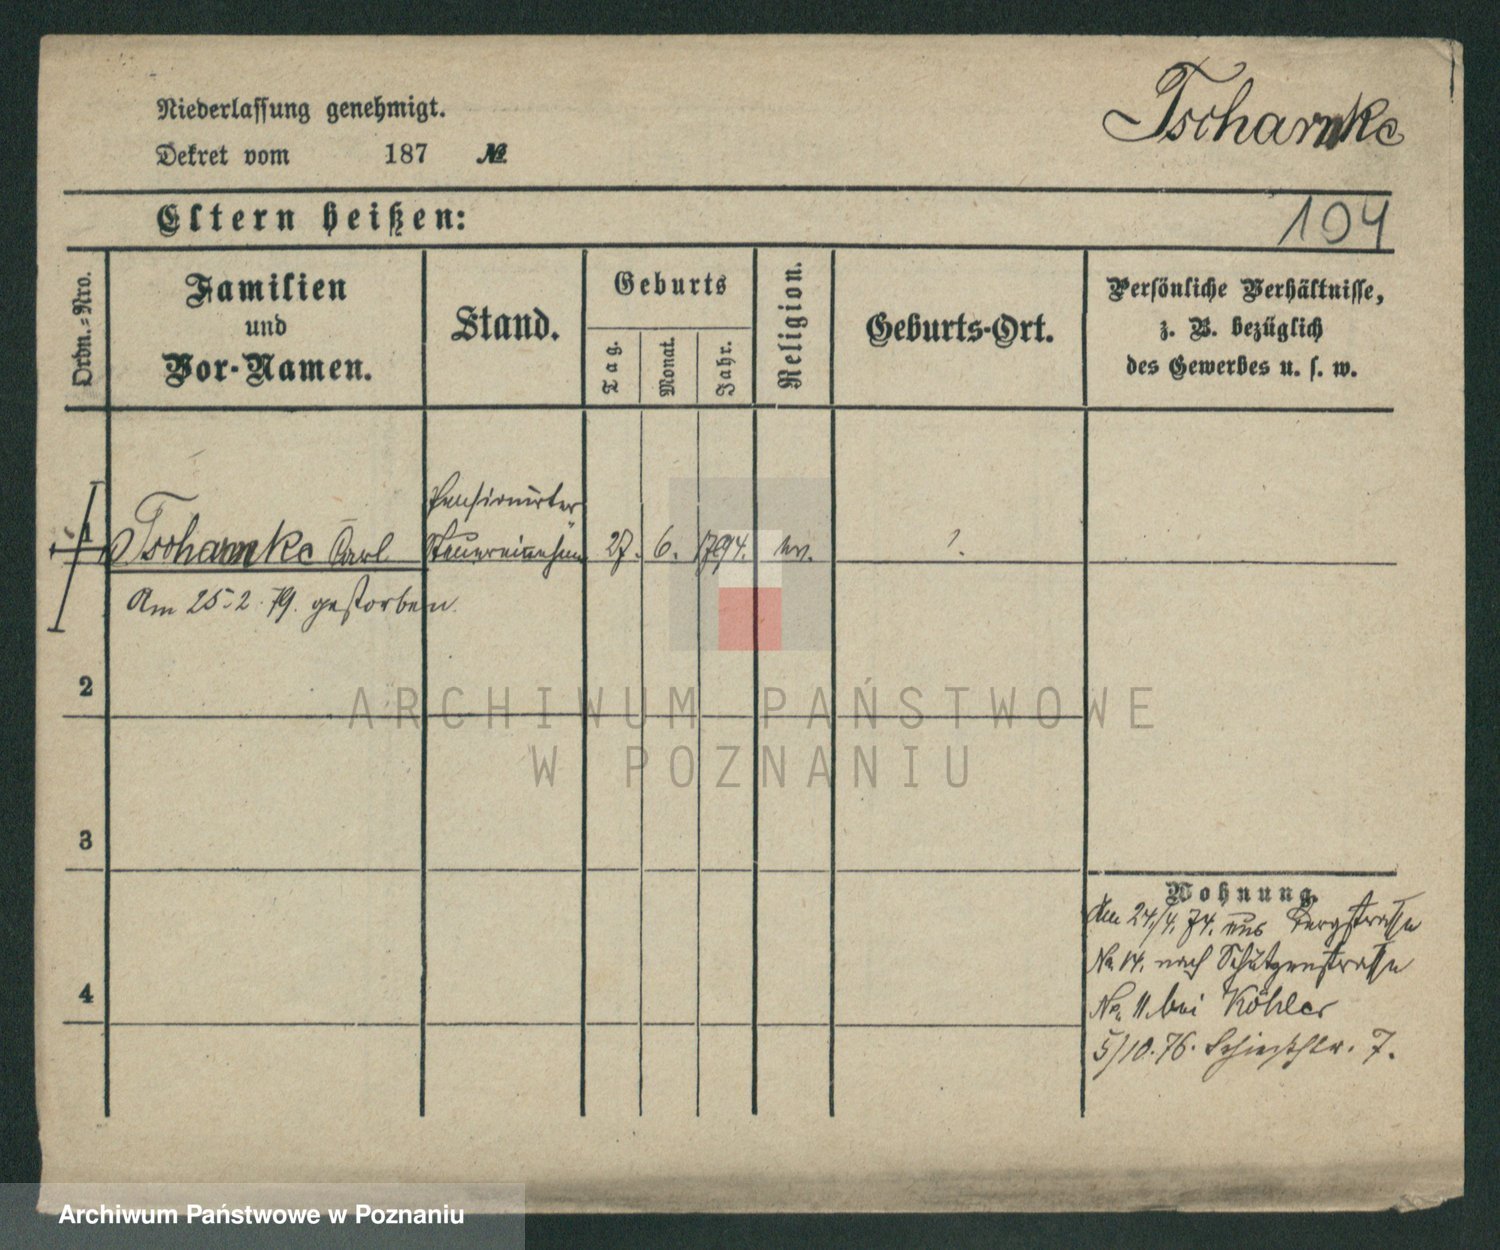 Tscharnke
Niederlassung genehmigt.
Dekret vom 187 №
Eltern heißen:
104
Ordn.-Nro.
Familien
und
Vor-Namen.
Stand.
Geburts
Tag.
Monat.
Jahr.
Religion.
Geburts-Ort.
Persönliche Verhältnisse,
z. B. bezüglich
des Gewerbes u. s. w.
Pensionirter
1 Tscharnke Carl Steuereinnehmer 27. 6. 1794. ev. ?.
Am 25.2.79. gestorben.
2
ARCHIWUM PAŃSTWOWE
W POZNANIU
3
Wohnung.
Am 24/4. 74. aus Bergstrasse
No 14. nach Schützenstrasse
No. 11. bei Köhler
4
5/10.76. Schießstr. 7.
Archiwum Państwowe w Poznaniu